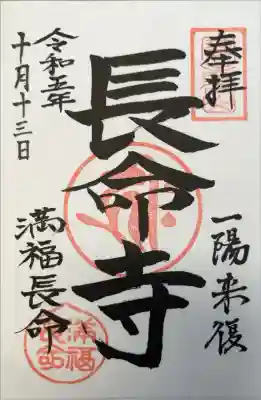 奉拝
一陽来復
長命寺
満福長命
令和五年
十月十三日
満福
長命